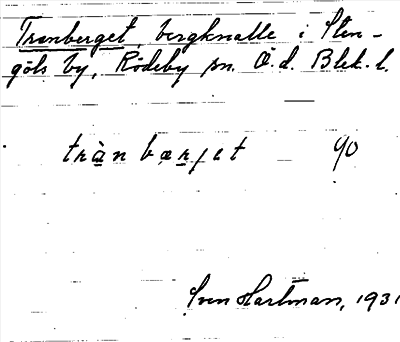 Tranberget, bergknalle i Sten-
göls by, Rödeby sn. Ö. d. Blek. l.
tràn bærjet 90
Sven Hartman, 1931